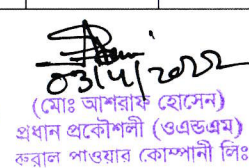 03/4/2022
(মোঃ আশরাফ হোসেন)
প্রধান প্রকৌশলী (ওএন্ডএম)
রুরাল পাওয়ার কোম্পানী লিঃ